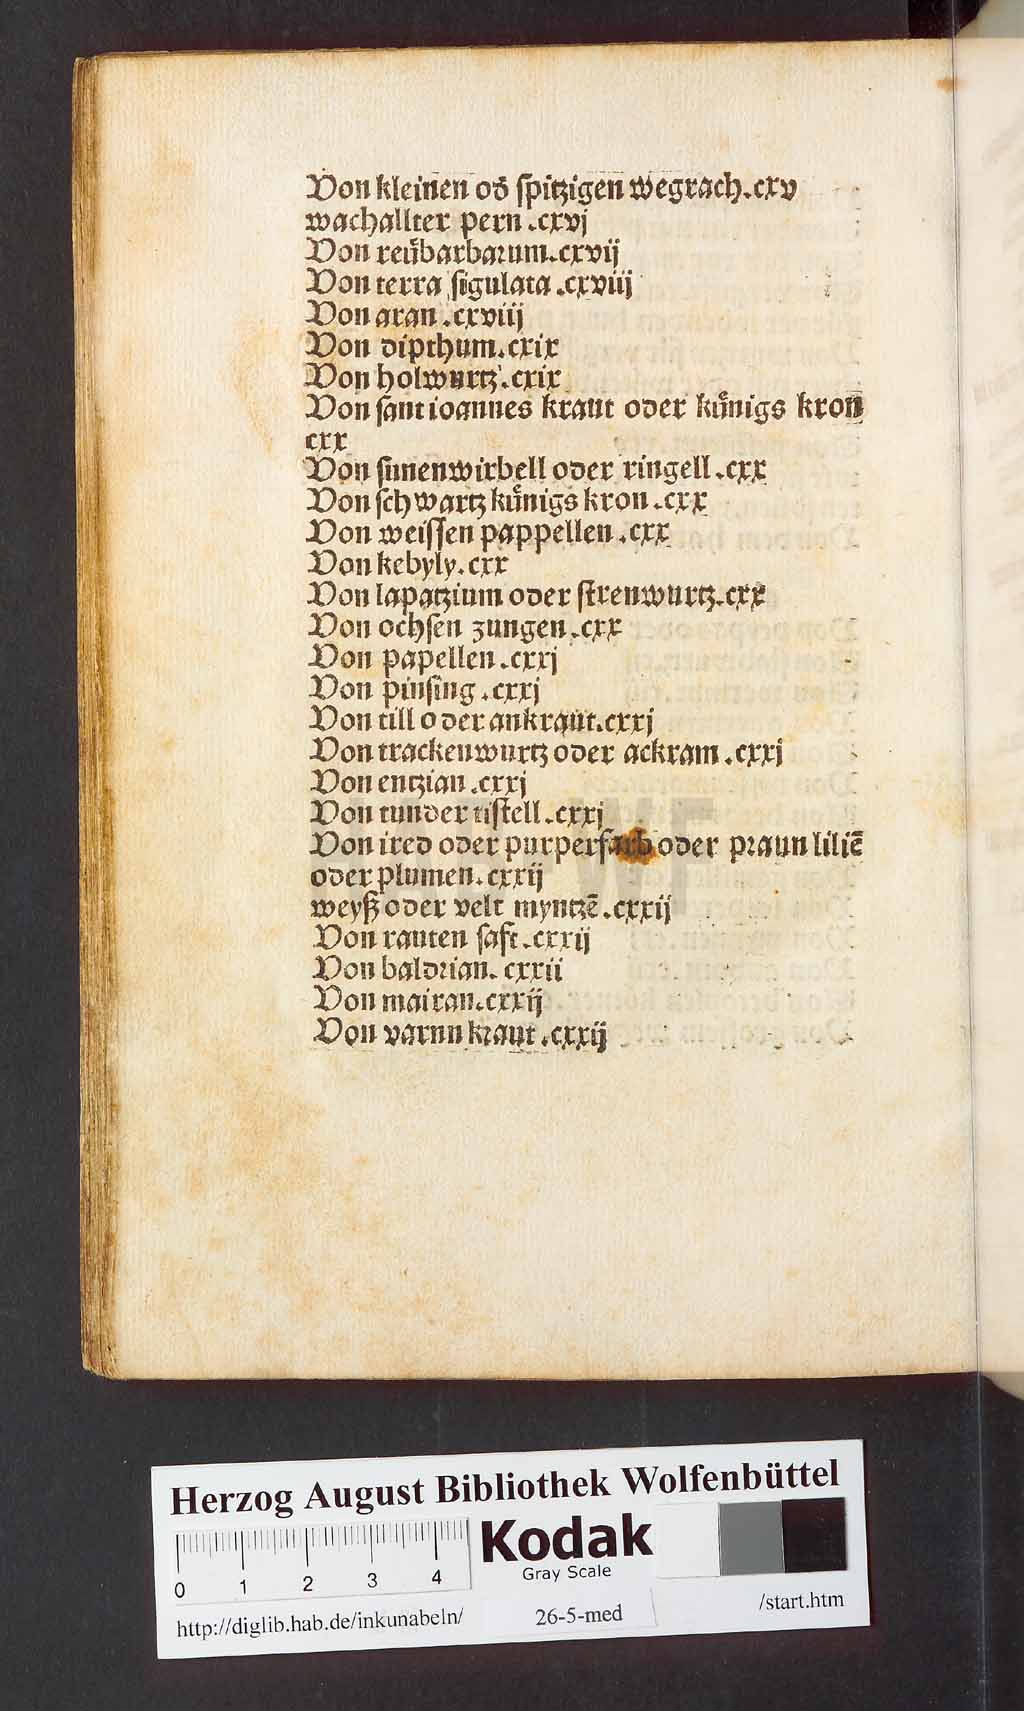 Von kleinen od̄ ſpitzigen wegrach.cxv
wachallter pern .cxvj
Von reuͤbarbarum.cxvij
Von terra ſigulata .cxviij
Von aran .cxviij
Von dipthum.cxix
Von holwurtz.cxix
Von ſant ioannes kraut oder kuͤnigs kron
cxx
Von ſunenwirbell oder ringell .cxx
Von ſchwartz kuͤnigs kron .cxx
Von weiſſen pappellen .cxx
Von kebyly. cxx
Von lapatzium oder ſtrenwurtz.cxx
Von ochſen zungen .cxx
Von papellen .cxxj
Von pinſing .cxxj
Von till oder ankraut.cxxj
Von trackenwurtz oder ackram .cxxj
Von entzian .cxxj
Von tunder tiſtell .cxxj
Von ired oder purperfarb oder praun liliē
oder plumen. cxxij
weyß oder velt myntzē .cxxij
Von rauten ſaft .cxxij
Von baldrian. cxxii
Von mairan.cxxij
Von varnn kraut .cxxij
Herzog August Bibliothek Wolfenbüttel
Kodak
Gray Scale
0 1 2 3 4
http://diglib.hab.de/inkunabeln/ 26-5-med /start.htm